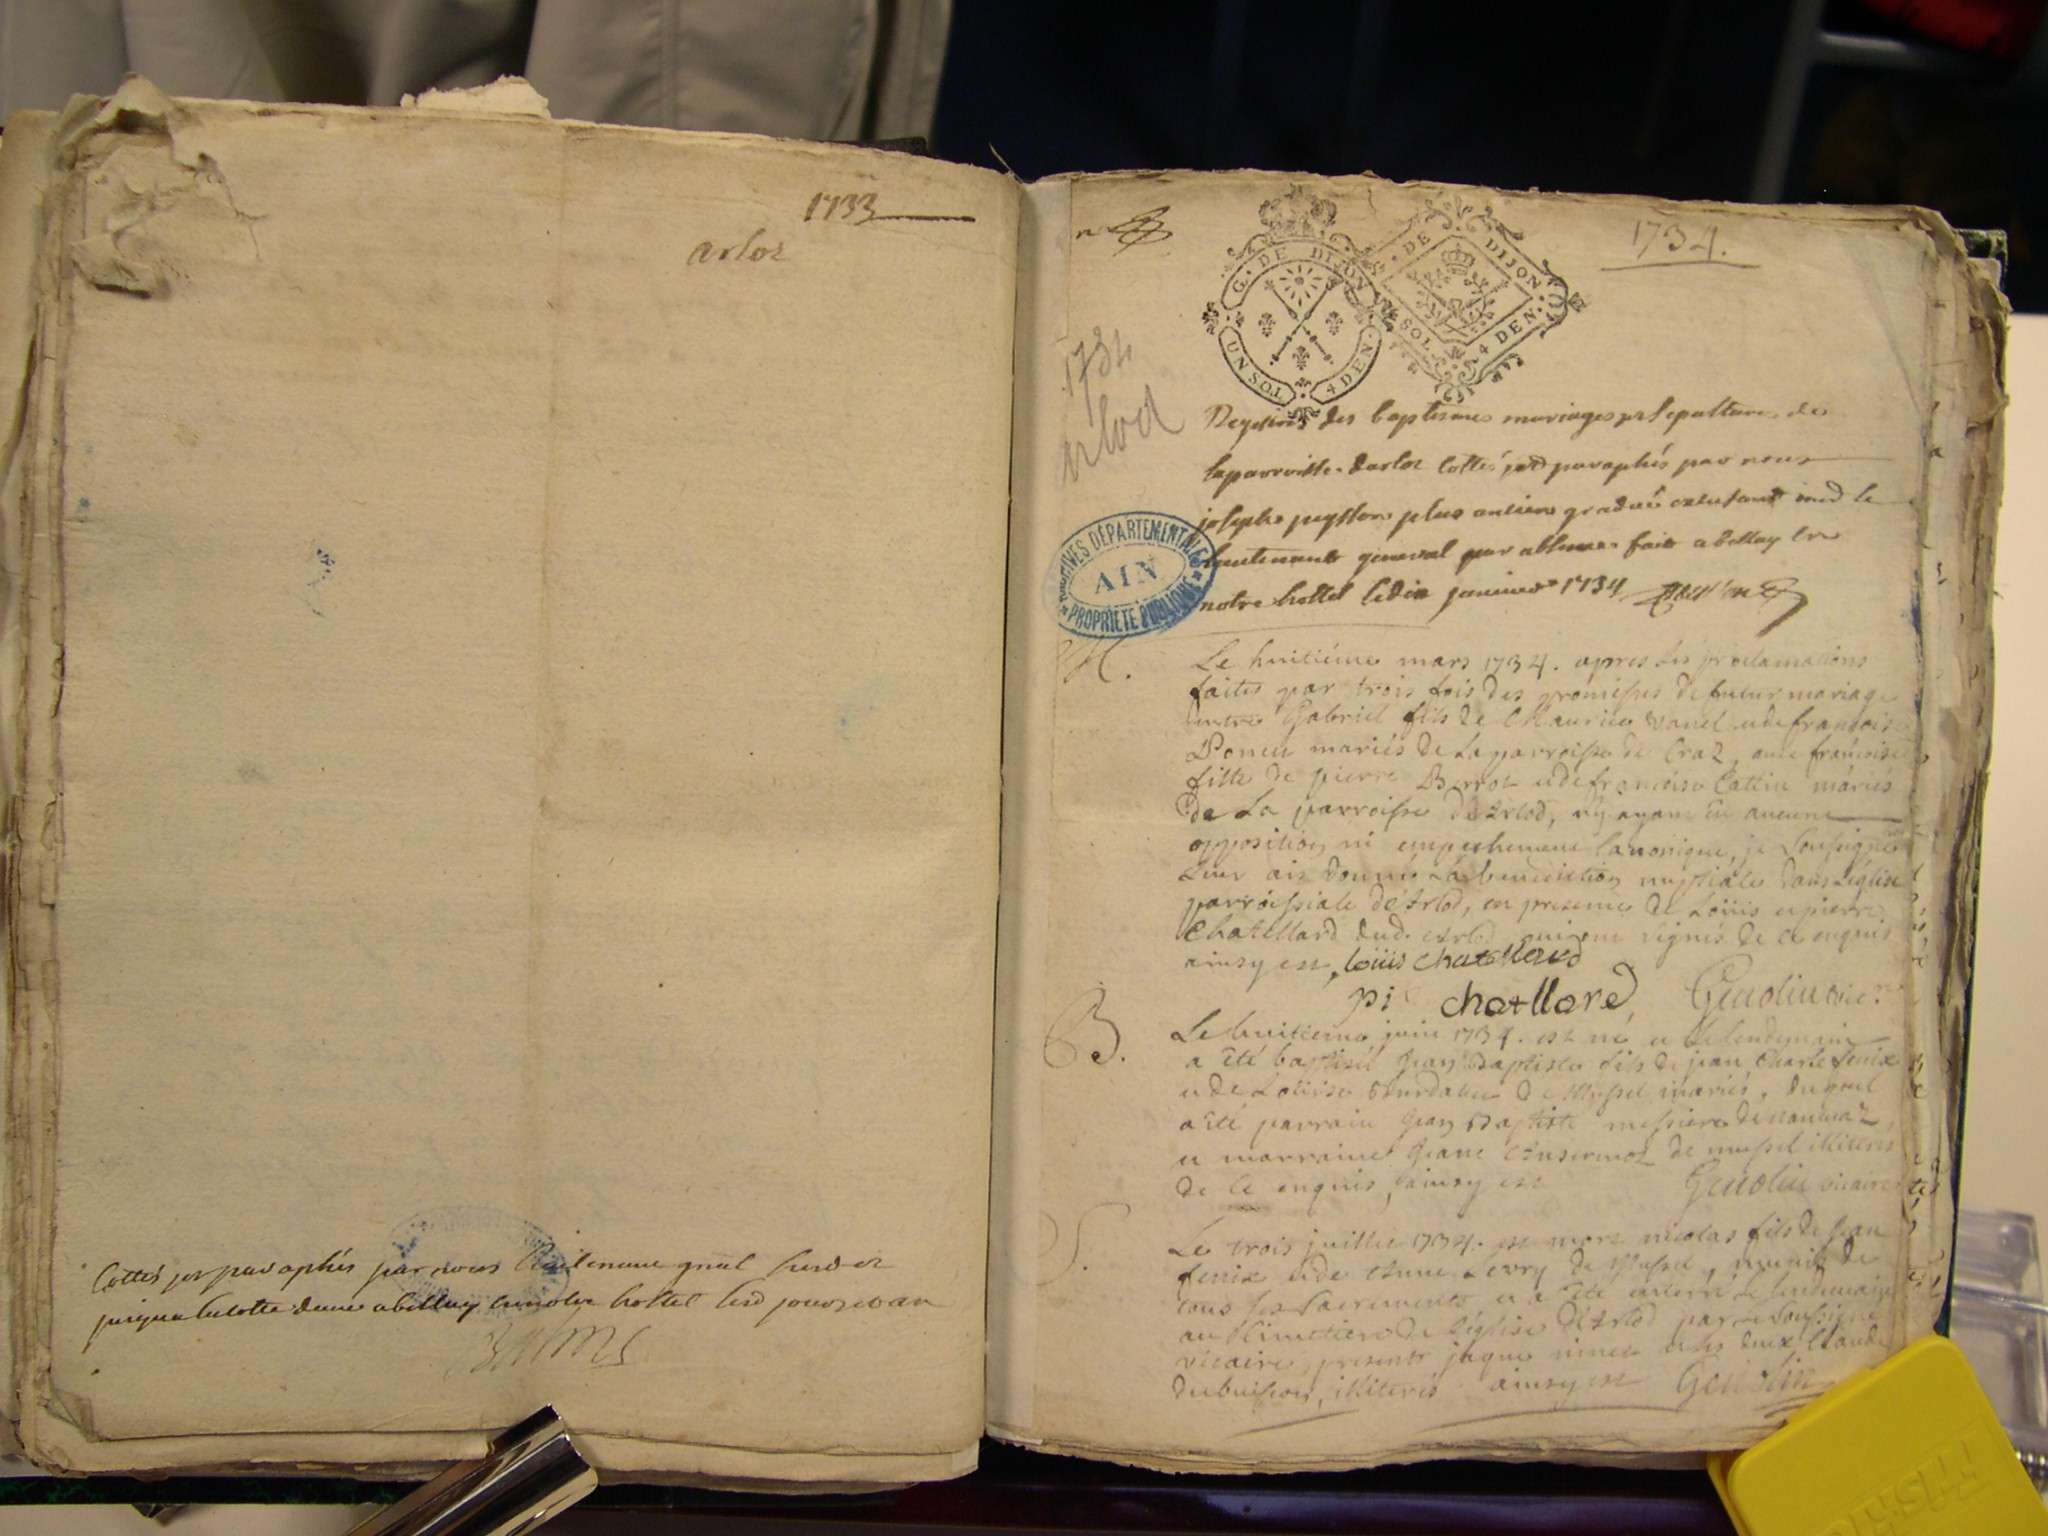 1733
arloz
Cottés et paraphés par nous Lieutenant gnal
jusque belley hostel
1734.
G. DE DIJON
UN SOL 4 DEN.
DE DIJON
SOL 4 DEN.
1734
arlod
ARCHIVES DÉPARTEMENTALES
AIN
PROPRIÉTÉ PUBLIQUE
Registre des baptesmes mariages et sepulture de
la parroisse darloz cottés et paraphés par nous
joseph peysson plus antien gradué mr le
lieutenant general par absence fait a belley en
notre hostel le dix janvier 1734
M.
Le huitiéme mars 1734. apres les proclamations
faites par trois fois des promesses de futur mariage
entre Gabriel fils de Maurice Vanel et de francoise
Poncet mariés de la parroisse de Craz, avec francoise
fille de pierre Berrot et de francoise Cattin mariés
de La parroisse d'Arlod, n'y ayant eu aucune
opposition ni empechement canonique, je soussigné
leur ais donné la benediction nuptiale dans l'église
parroissiale d'Arlod, en presence de Loüis et pierre
Chatellard dud. Arlod qui ont signés de ce enquis
ainsy est, loüis chatellard
pi chatllard Genolin vic.re
B.
Le huitieme juin 1734. est né et le lendemain
a été baptisé Jean Baptiste fils de jean Charle fenix
et de Loüise de Mussel mariés. duquel
a été parrain Jean Baptiste messiere de
et marraine Jeane Ansermoz de mussel illiterés
de ce enquis, ainsy est Genolin vicaire
S.
Le trois juillet 1734. est mort nicolas fils de Jean
fenix et de Anne Levry de Mussel, munis de
tous ses Sacrements et a été enterré le lendemain
au Cimetiere de l'église d'Arlod par le soussigné
vicaire, presents jaque ninet et Claude
dubuisson, illiterés ainsy est Genolin